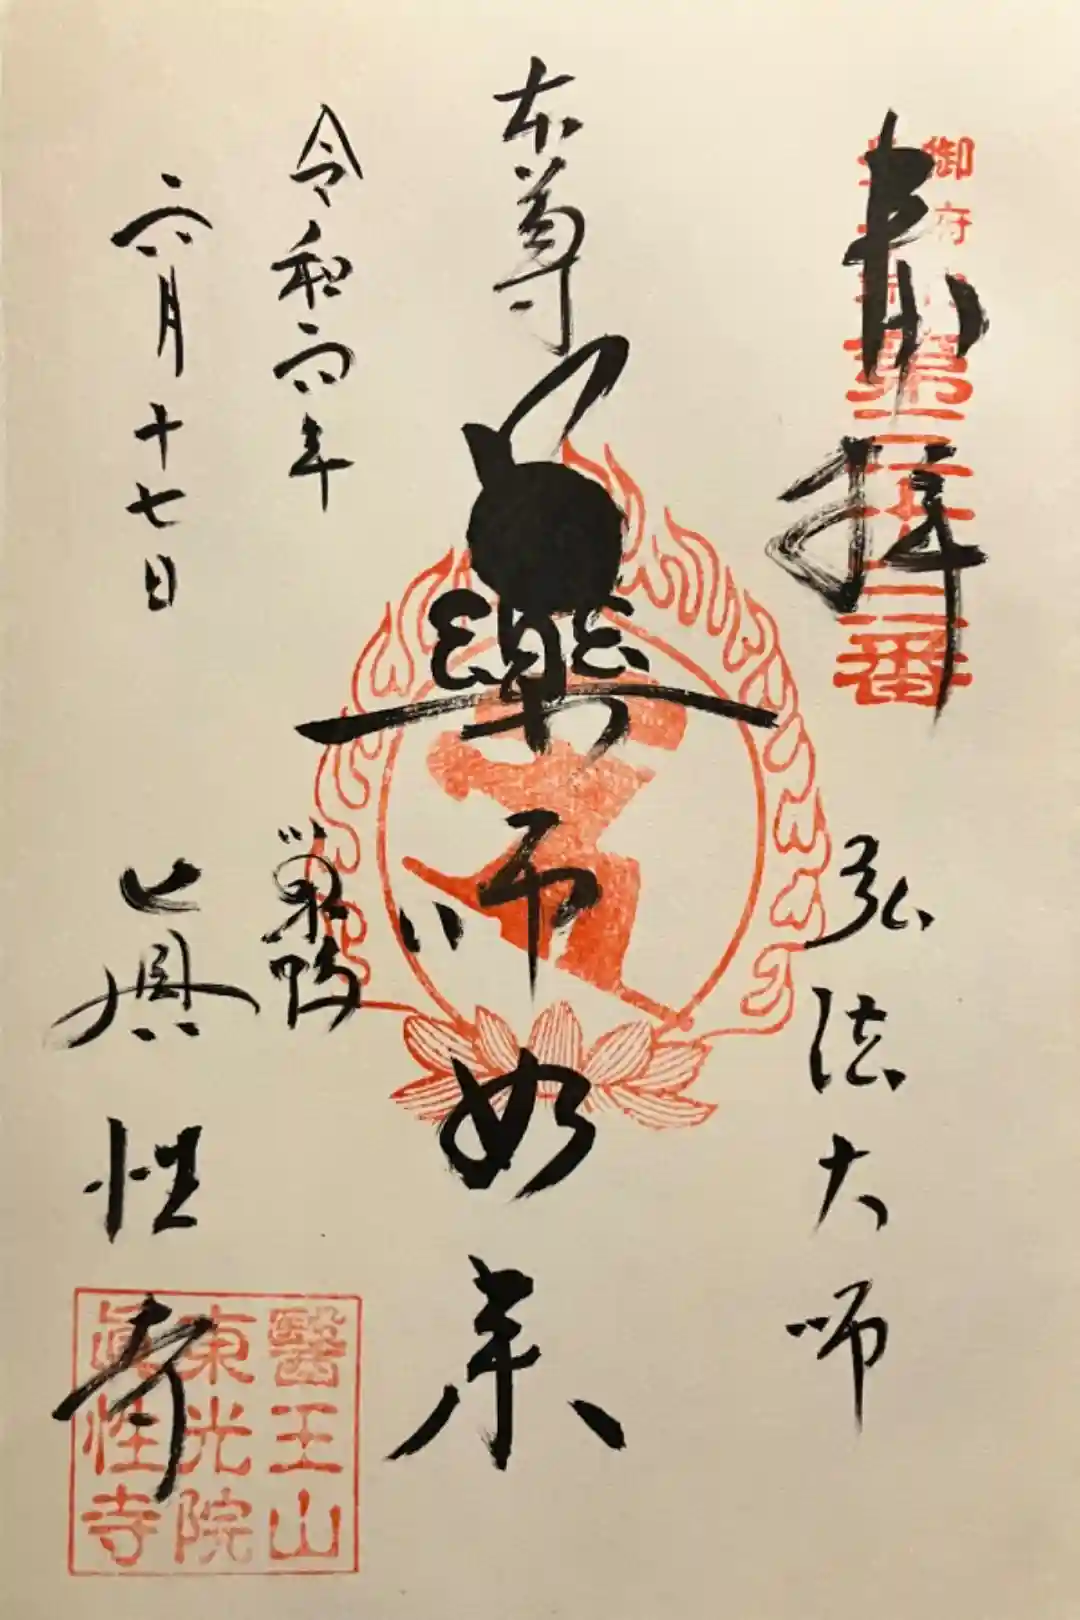 奉拝
弘法大師
本尊
薬師如来
令和六年
六月十七日
巣鴨
眞性寺
御府
第三十三番
醫王山
東光院
眞性寺